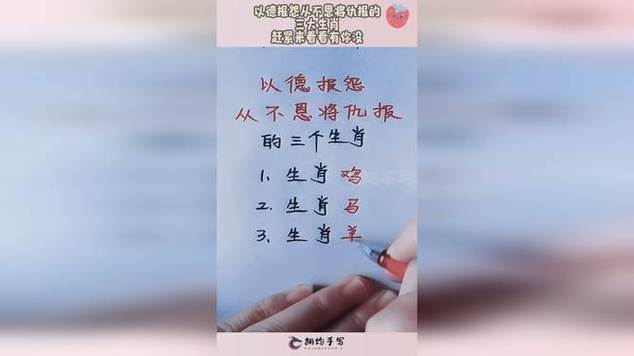 以德报怨从不恩将仇报的
三大生肖
赶紧来看看有你没
以德报怨
从不恩将仇报
的三个生肖
1、生肖鸡
2、生肖马
3、生肖羊
手写